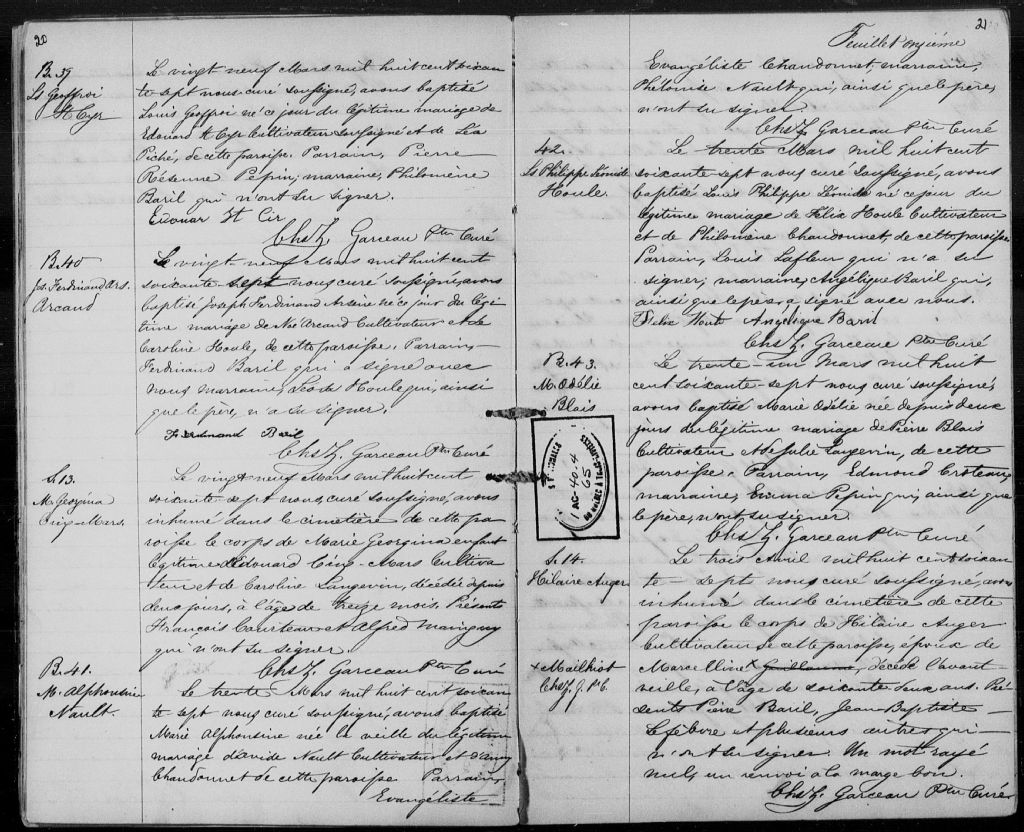 20
B. 39
Ls Geoffroi
St Cyr
Le vingt neuf Mars mil huit cent soixan
te sept nous curé soussigné, avons baptisé
Louis Geoffroi né ce jour du légitime mariage de
Edouard St Cyr Cultivateur soussigné et de Léa
Piché, de cette paroisse. Parrain, Pierre
Pépin; marraine, Philomène
Baril qui n'ont su signer.
Edouar St Cir
Chs Z. Garceau Ptre Curé
B. 40
Js. Ferdinand Ars.
Arcand
Le vingt-neuf Mars mil huit cent
soixante sept nous curé soussigné, avons
baptisé Joseph Ferdinand Arsène né ce jour du légi
time mariage de Noé Arcand Cultivateur et de
Caroline Houle, de cette paroisse. Parrain,
Ferdinand Baril qui a signé avec
nous marraine, Houle qui, ainsi
que le père, n'a su signer.
Ferdinand Baril
Chs Z. Garceau Ptre Curé
S. 13.
M. Georgina
Cinq-Mars.
Le vingt neuf Mars mil huit cent
soixante-sept nous, curé soussigné, avons
inhumé dans le cimetière de cette pa
roisse le corps de Marie Georgina enfant
légitime d'Edouard Cinq-Mars Cultiva
teur et de Caroline Langevin, décédée depuis
deux jours, à l'âge de treize mois. Présents
François Courteau et Alfred Marigny
qui n'ont su signer
Chs Z. Garceau Ptre Curé
B. 41.
M. Alphonsine
Nault.
Le trente Mars mil huit cent soixan
te sept nous curé soussigné, avons baptisé
Marie Alphonsine née la veille du légitime
mariage d'avide Nault Cultivateur et d'
Chandonnet de cette paroisse Parrain,
Evangéliste
21
Feuillet onzième
Evangéliste Chandonnet, marraine,
Phélonise Nault qui, ainsi que le père,
n'ont su signer
Chs Z. Garceau Ptre Curé
42.
Ls Philippe Léonide
Houle.
Le trente Mars mil huit cent
soixante sept nous curé soussigné, avons
baptisé Louis Philippe Léonide né ce jour du
légitime mariage de Félix Houle Cultivateur
et de Philomène Chandonnet, de cette paroisse
Parrain, Louis Lafleur qui n'a su
signer; marraine, Angélique Baril qui,
ainsi que le père, a signé avec nous.
Angelique Baril
Chs Z. Garceau Ptre Curé
B. 43.
M. Odélie
Blais
Le trente-un Mars mil huit
cent soixante-sept nous curé soussigné,
avons baptisé Marie Odélie née depuis deux
jours du légitime mariage de Pierre Blais
Cultivateur et de Julie Langevin, de cette
paroisse. Parrain, Edmond Croteau,
marraine, Emma Pépin qui, ainsi que
le père, n'ont su signer.
Chs Z. Garceau Ptre Curé
S. 14.
Hilaire Auger
Le trois Avril mil huit cent soixan
te-sept nous curé soussigné, avons
inhumé dans le cimetière de cette
paroisse le corps de Hilaire Auger
Cultivateur de cette paroisse, époux de
Marcelline x Guillaume, décédé l'avant
veille, à l'âge de soixante deux ans. Pré
sents Pierre Baril, Jean-Baptiste
Lefebvre et plusieurs autres qui
n'ont su signer. Un mot rayé
nul, un renvoi à la marge bon.
Chs Z. Garceau Ptre Curé
x Mailhiot
Chs Z. G. P. C.